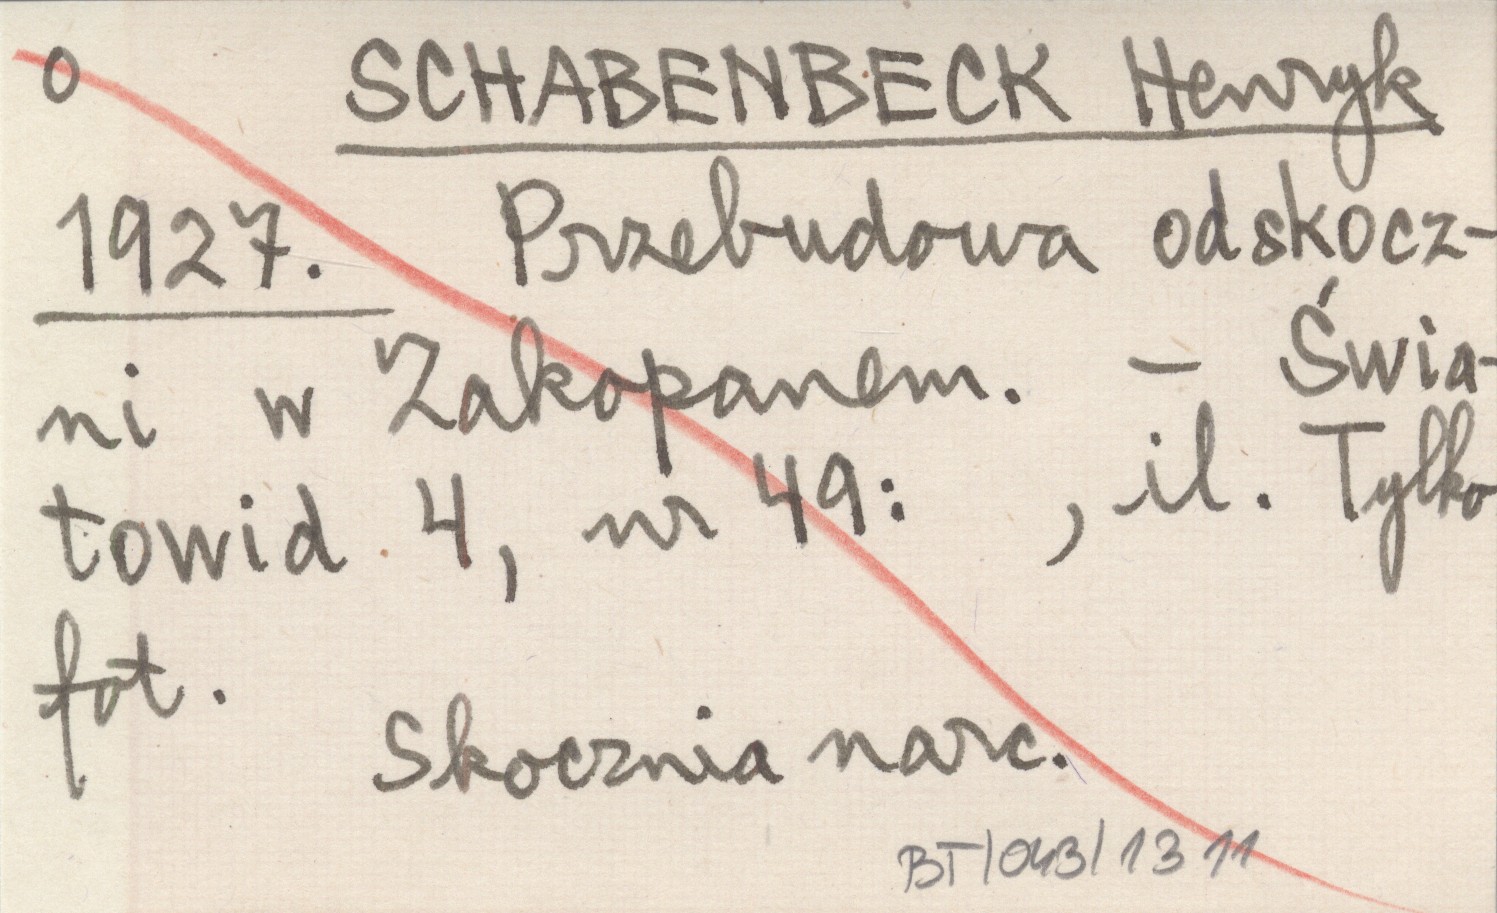 o SCHABENBECK Henryk
1927. Przebudowa odskocz-
ni w Zakopanem. - Świa-
towid 4, nr 49: , il. Tylko
fot.
Skocznia narc.
BT/043/1311